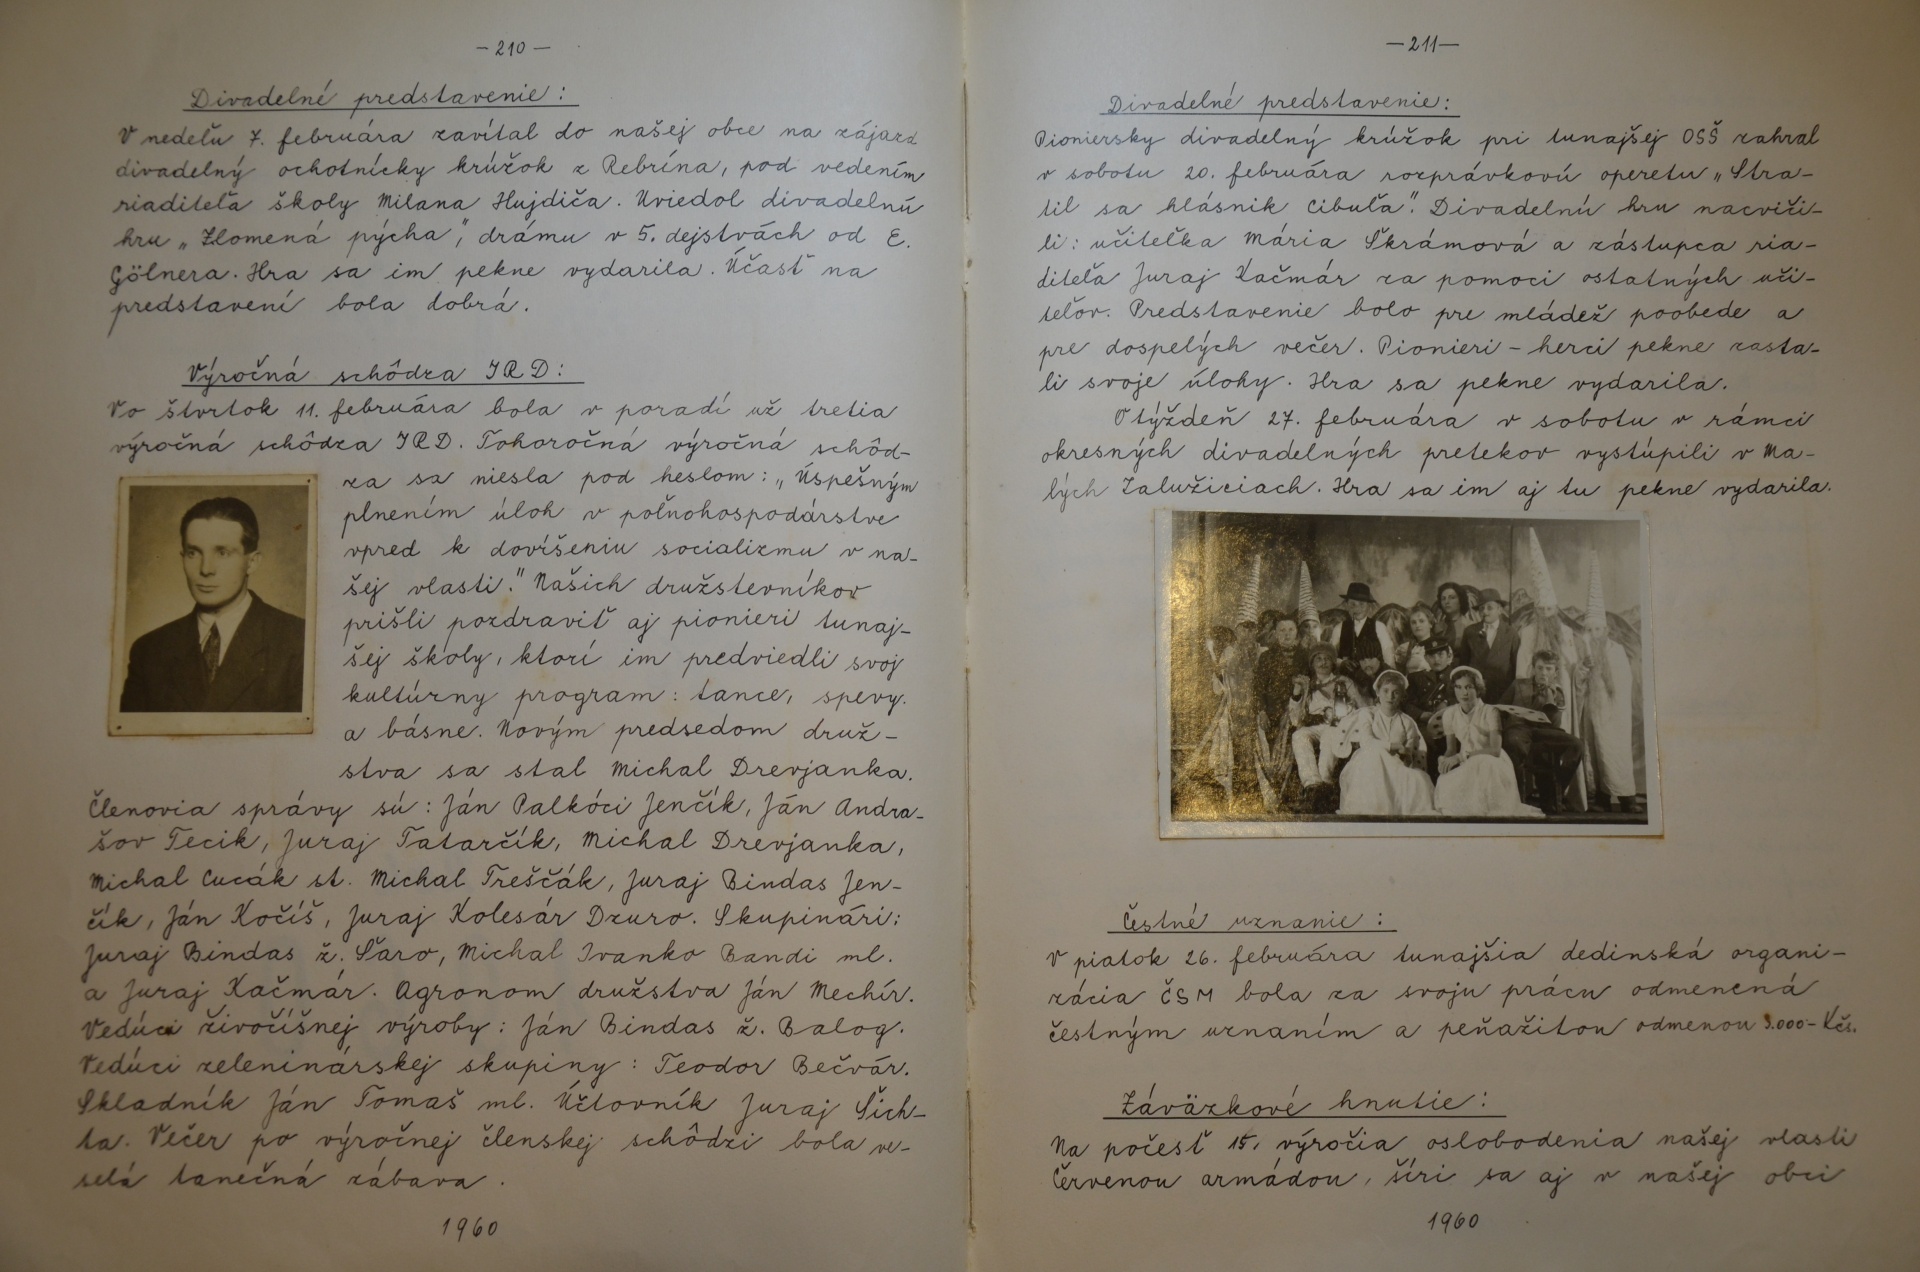 —210—
Divadelné predstavenie:
V nedeľu 7. februára zavítal do našej obce na zájazd
divadelný ochotnícky krúžok z Rebrína, pod vedením
riaditeľa školy Milana Hujdiča. Uviedol divadelnú
hru „Zlomená pýcha", drámu v 5. dejstvách od E.
Gölnera. Hra sa im pekne vydarila. Účasť na
predstavení bola dobrá.
Výročná schôdza JRD:
Vo štvrtok 11. februára bola v poradí už tretia
výročná schôdza JRD. Tohoročná výročná schôd-
za sa niesla pod heslom: „Úspešným
plnením úloh v poľnohospodárstve
vpred k dovŕšeniu socializmu v na-
šej vlasti." Našich družstevníkov
prišli pozdraviť aj pionieri tunaj-
šej školy, ktorí im predviedli svoj
kultúrny program: tance, spevy.
a básne. Novým predsedom druž-
stva sa stal Michal Drevjanka.
Členovia správy sú: Ján Palkóci Jenčík, Ján Andra-
šov Tecik, Juraj Tatarčík, Michal Drevjanka,
Michal Cucák st. Michal Treščák, Juraj Bindas Jen-
čík, Ján Kočíš, Juraj Kolesár Dzuro. Skupinári:
Juraj Bindas ž. Šaro, Michal Ivanko Bandi ml.
a Juraj Kačmár. Agronom družstva Ján Mechír.
Vedúci živočíšnej výroby: Ján Bindas ž. Balog.
Vedúci zeleninárskej skupiny: Teodor Bečvár.
Skladník Ján Tomaš ml. Účtovník Juraj Šich-
ta. Večer po výročnej členskej schôdzi bola ve-
selá tanečná zábava.
1960
—211—
Divadelné predstavenie:
Pioniersky divadelný krúžok pri tunajšej OSŠ zahral
v sobotu 20. februára rozprávkovú operetu „Stra-
til sa hlásnik Cibuľa". Divadelnú hru nacviči-
li: učiteľka Mária Škrámová a zástupca ria-
diteľa Juraj Kačmár za pomoci ostatných uči-
teľov. Predstavenie bolo pre mládež poobede a
pre dospelých večer. Pionieri – herci pekne zasta-
li svoje úlohy. Hra sa pekne vydarila.
O týždeň 27. februára v sobotu v rámci
okresných divadelných pretekov vystúpili v Ma-
lých Zalužiciach. Hra sa im aj tu pekne vydarila.
Čestné uznanie:
V piatok 26. februára tunajšia dedinská organi-
zácia ČSM bola za svoju prácu odmenená
čestným uznaním a peňažitou odmenou 3.000- Kčs.
Záväzkové hnutie:
Na počesť 15. výročia oslobodenia našej vlasti
Červenou armádou, šíri sa aj v našej obci
1960